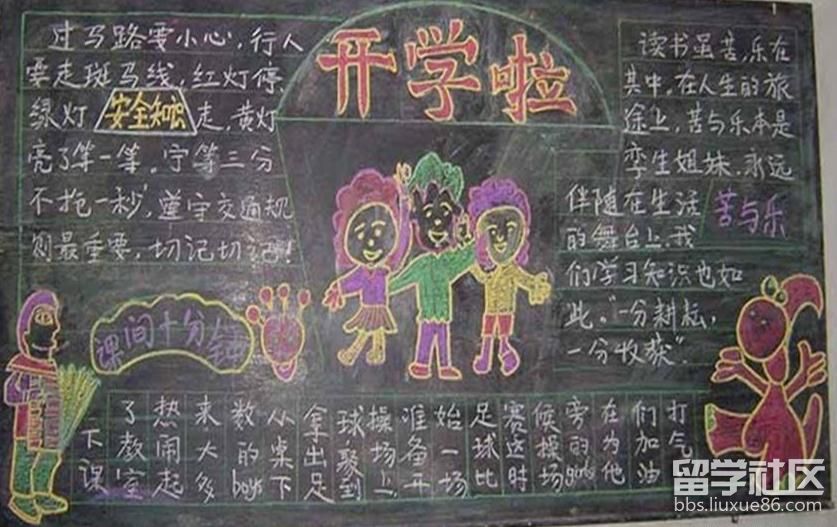 开学啦
过马路要小心,行人
要走斑马线,红灯停
绿灯 安全知识 走,黄灯
亮了等一等。宁等三分
不抢一秒,遵守交通规
则最重要,切记切记!
读书虽苦,乐在
其中,在人生的旅
途上,苦与乐本是
孪生姐妹,永远
伴随在生活
的舞台上,我
们学习知识也如
此。“一分耕耘,
一分收获”.
苦与乐
课间十分钟
下课
了教室
热闹起
来大多
数的boys
从桌下
拿出足
球,聚到
操场上
准备开
始一场
足球比
赛这时
候操场
旁的girls
在为他
们加油
打气
留学社区
bbs.liuxue86.com